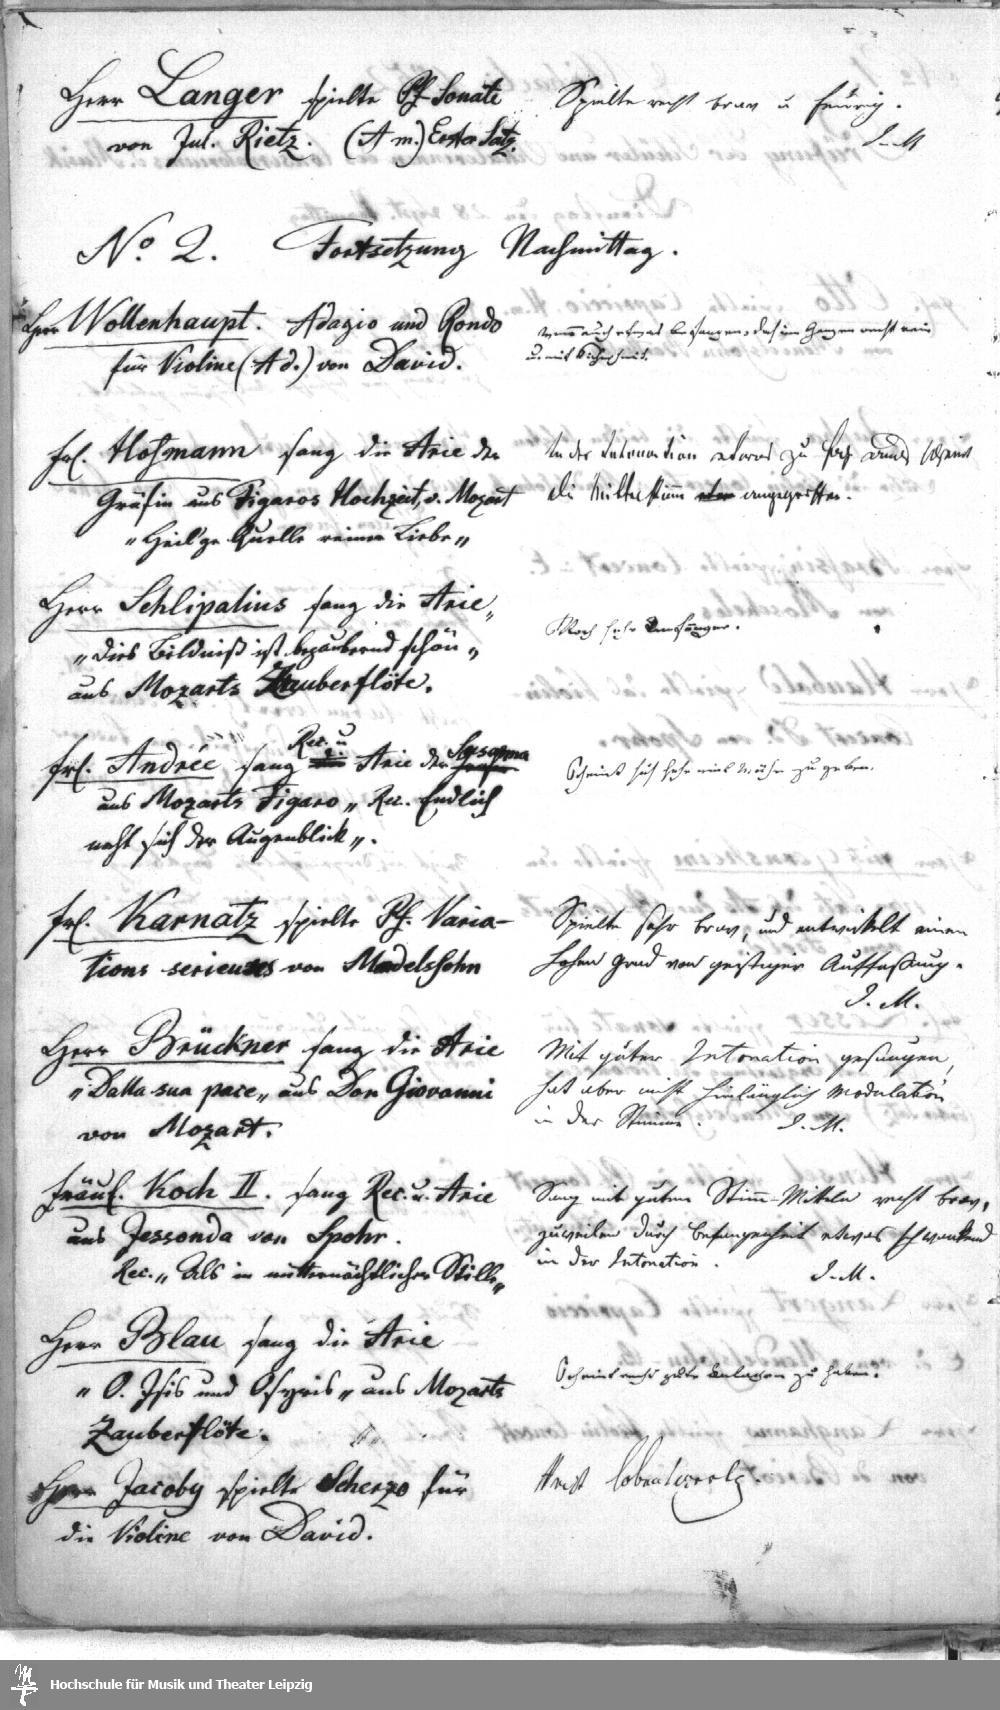 Herr Langer spielte Pf. Sonate
von Jul. Rietz. (A m.) Erster Satz.
Spielte recht brav u feurig.
I. M
No. 2. Fortsetzung Nachmittag.
Herr Wollenhaupt. Adagio und Rondo
für Violine (A d.) von David.
wenn auch etwas befangen, doch im Ganzen recht rein
u. mit Sicherheit.
Frl. Hofmann sang die Arie der
Gräfin aus Figaros Hochzeit, v. Mozart
"Heil'ge Quelle reiner Liebe"
In der Intonation etwas zu hoch auch scheint
die Mittelstimm angegriffen.
Herr Schlipalius sang die Arie
"Dies Bildniß ist bezaubernd schön"
aus Mozarts Zauberflöte.
Noch sehr Anfänger.
Frl. Andrée sang Rec. u Arie der Susanna
aus Mozarts Figaro "Rec. Endlich
naht sich der Augenblick".
Scheint sich sehr viel Mühe zu geben.
Frl. Karnatz spielte Pf. Varia-
tions serieuses von Mendelssohn
Spielte sehr brav, und entwickelt einen
hohen Grad von geistiger Auffaßung.
I. M.
Herr Brückner sang die Arie
"Dalla sua pace" aus Don Giovanni
von Mozart.
Mit guter Intonation gesungen,
hat aber nicht hinlänglich Modulation
in der Stimme. I. M.
Fräul. Koch II. sang Rec. u. Arie
aus Jessonda von Spohr.
Rec. "Als in mitternächtlicher Stille"
Sang mit guten Stimm-Mitteln recht brav,
zuweilen durch Befangenheit etwas schwankend
in der Intonation.
I. M.
Herr Blau sang die Arie
"O. Isis und Osyris" aus Mozarts
Zauberflöte.
Scheint nicht gute Anlagen zu haben.
Herr Jacoby spielte Scherzo für
die Violine von David.
Recht lobenswerth
Hochschule für Musik und Theater Leipzig